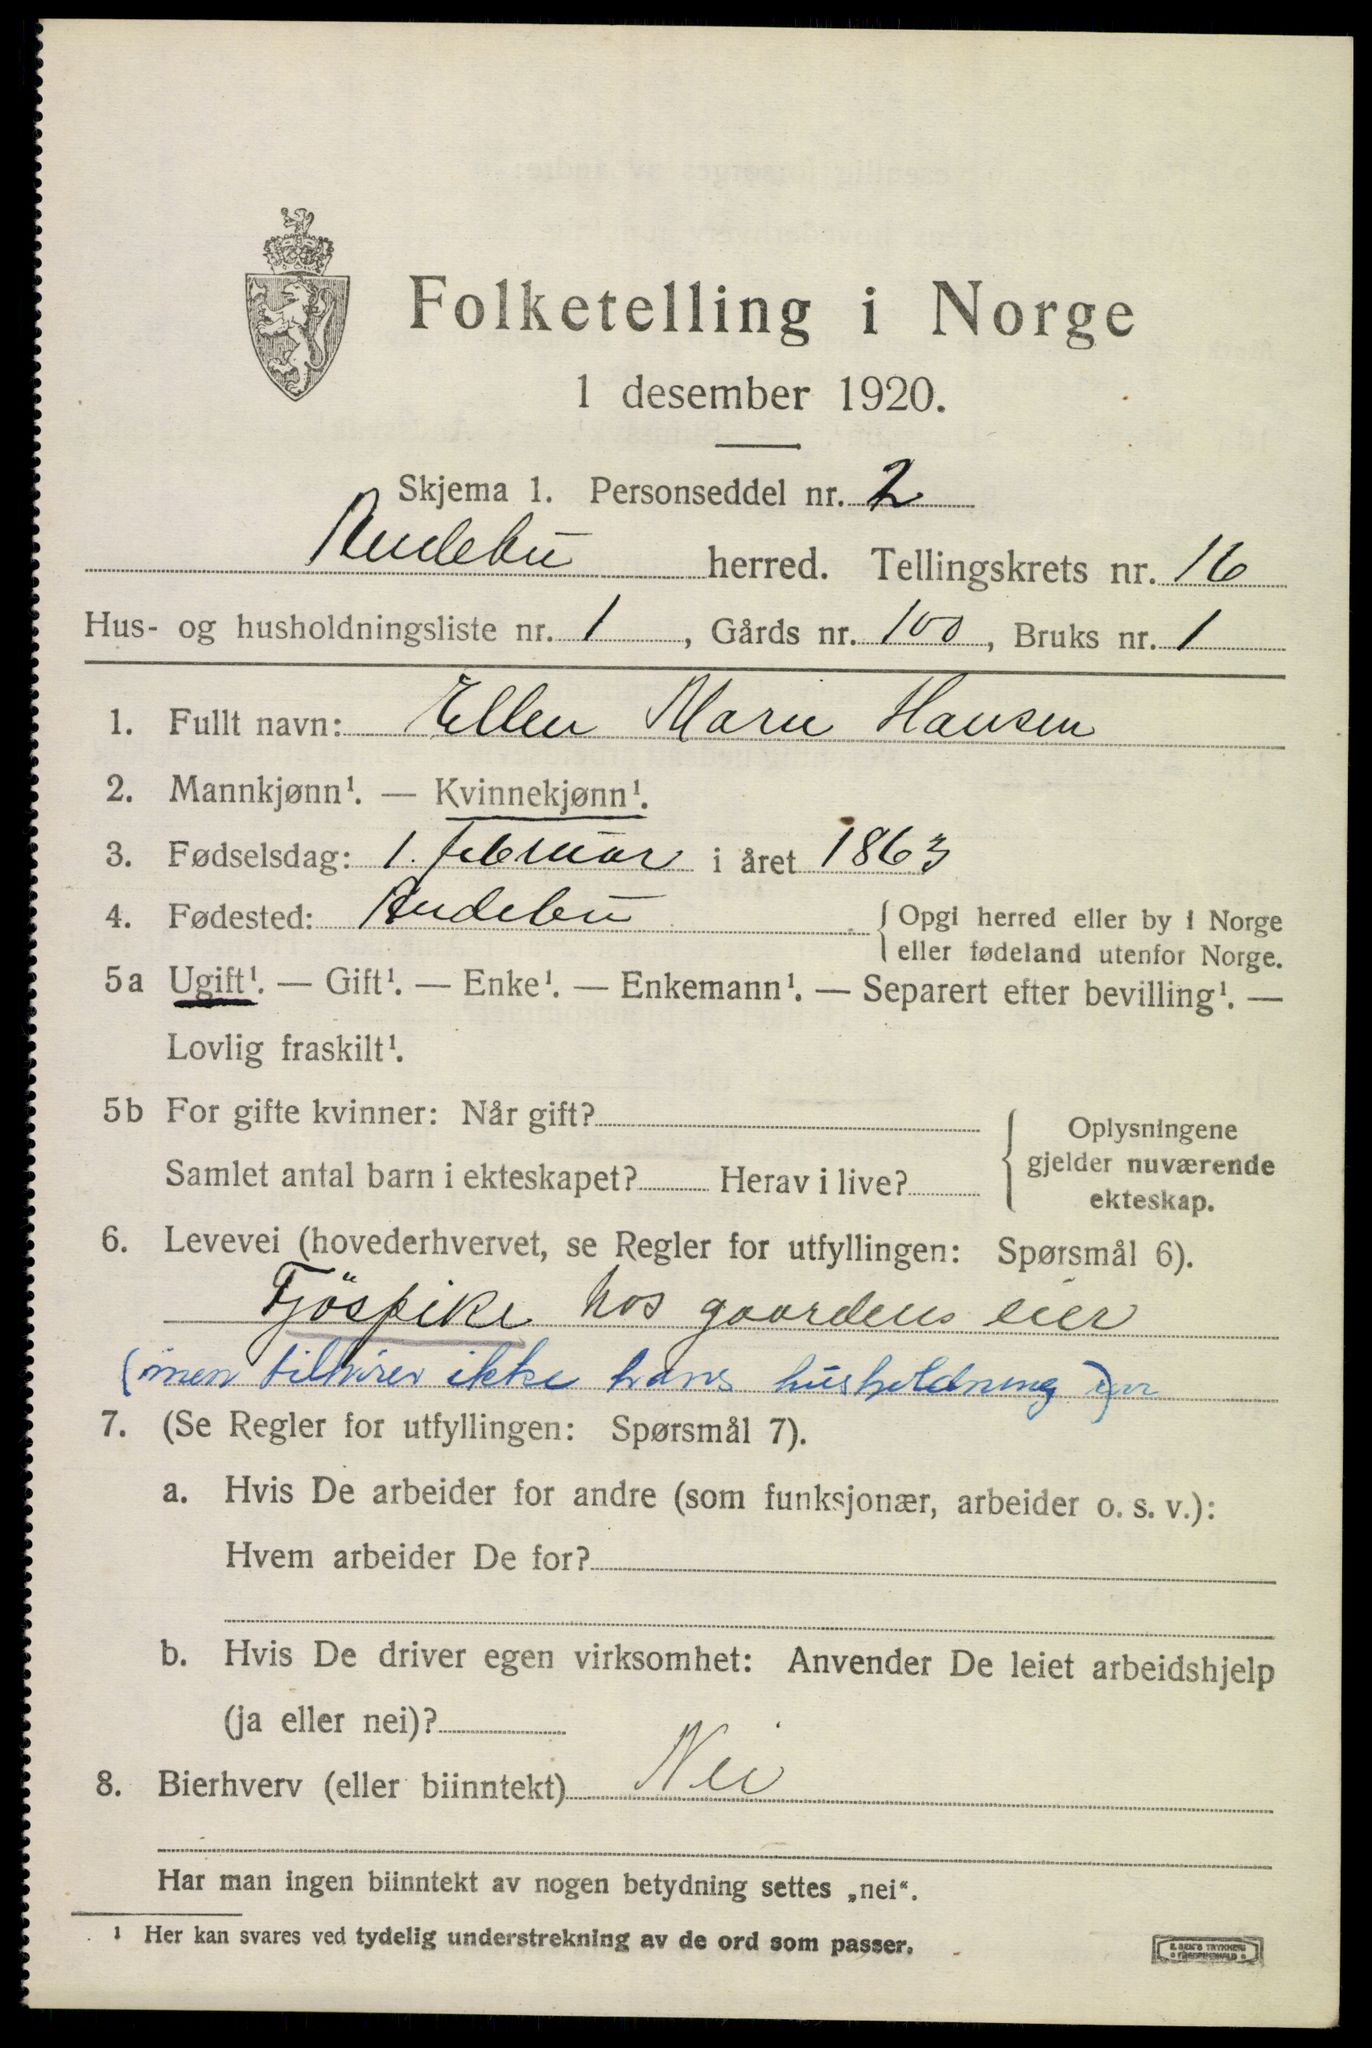 Folketelling i Norge
1 desember 1920.
Skjema 1. Personseddel nr. 2
Andebu herred. Tellingskrets nr. 16
Hus- og husholdningsliste nr. 1, Gårds nr. 100, Bruks nr. 1
1. Fullt navn: Ellen Marie Hansen
2. Mannkjønn¹. — Kvinnekjønn¹.
3. Fødselsdag: 1. februar i året 1863
4. Fødested: Andebu {Opgi herred eller by i Norge
eller fødeland utenfor Norge.
5a Ugift¹. — Gift¹. — Enke¹. — Enkemann¹. — Separert efter bevilling¹. —
Lovlig fraskilt¹.
5b For gifte kvinner: Når gift?
Samlet antal barn i ekteskapet? Herav i live?
Oplysningene
gjelder nuværende
ekteskap.
6. Levevei (hovederhvervet, se Regler for utfyllingen: Spørsmål 6).
Fjöspike hos gaardens eier
(men tilhörer ikke hans husholdning)
7. (Se Regler for utfyllingen: Spørsmål 7).
a. Hvis De arbeider for andre (som funksjonær, arbeider o. s. v.):
Hvem arbeider De for?
b. Hvis De driver egen virksomhet: Anvender De leiet arbeidshjelp
(ja eller nei)?
8. Bierhverv (eller biinntekt) Nei
Har man ingen biinntekt av nogen betydning settes „nei“.
¹ Her kan svares ved tydelig understrekning av de ord som passer.